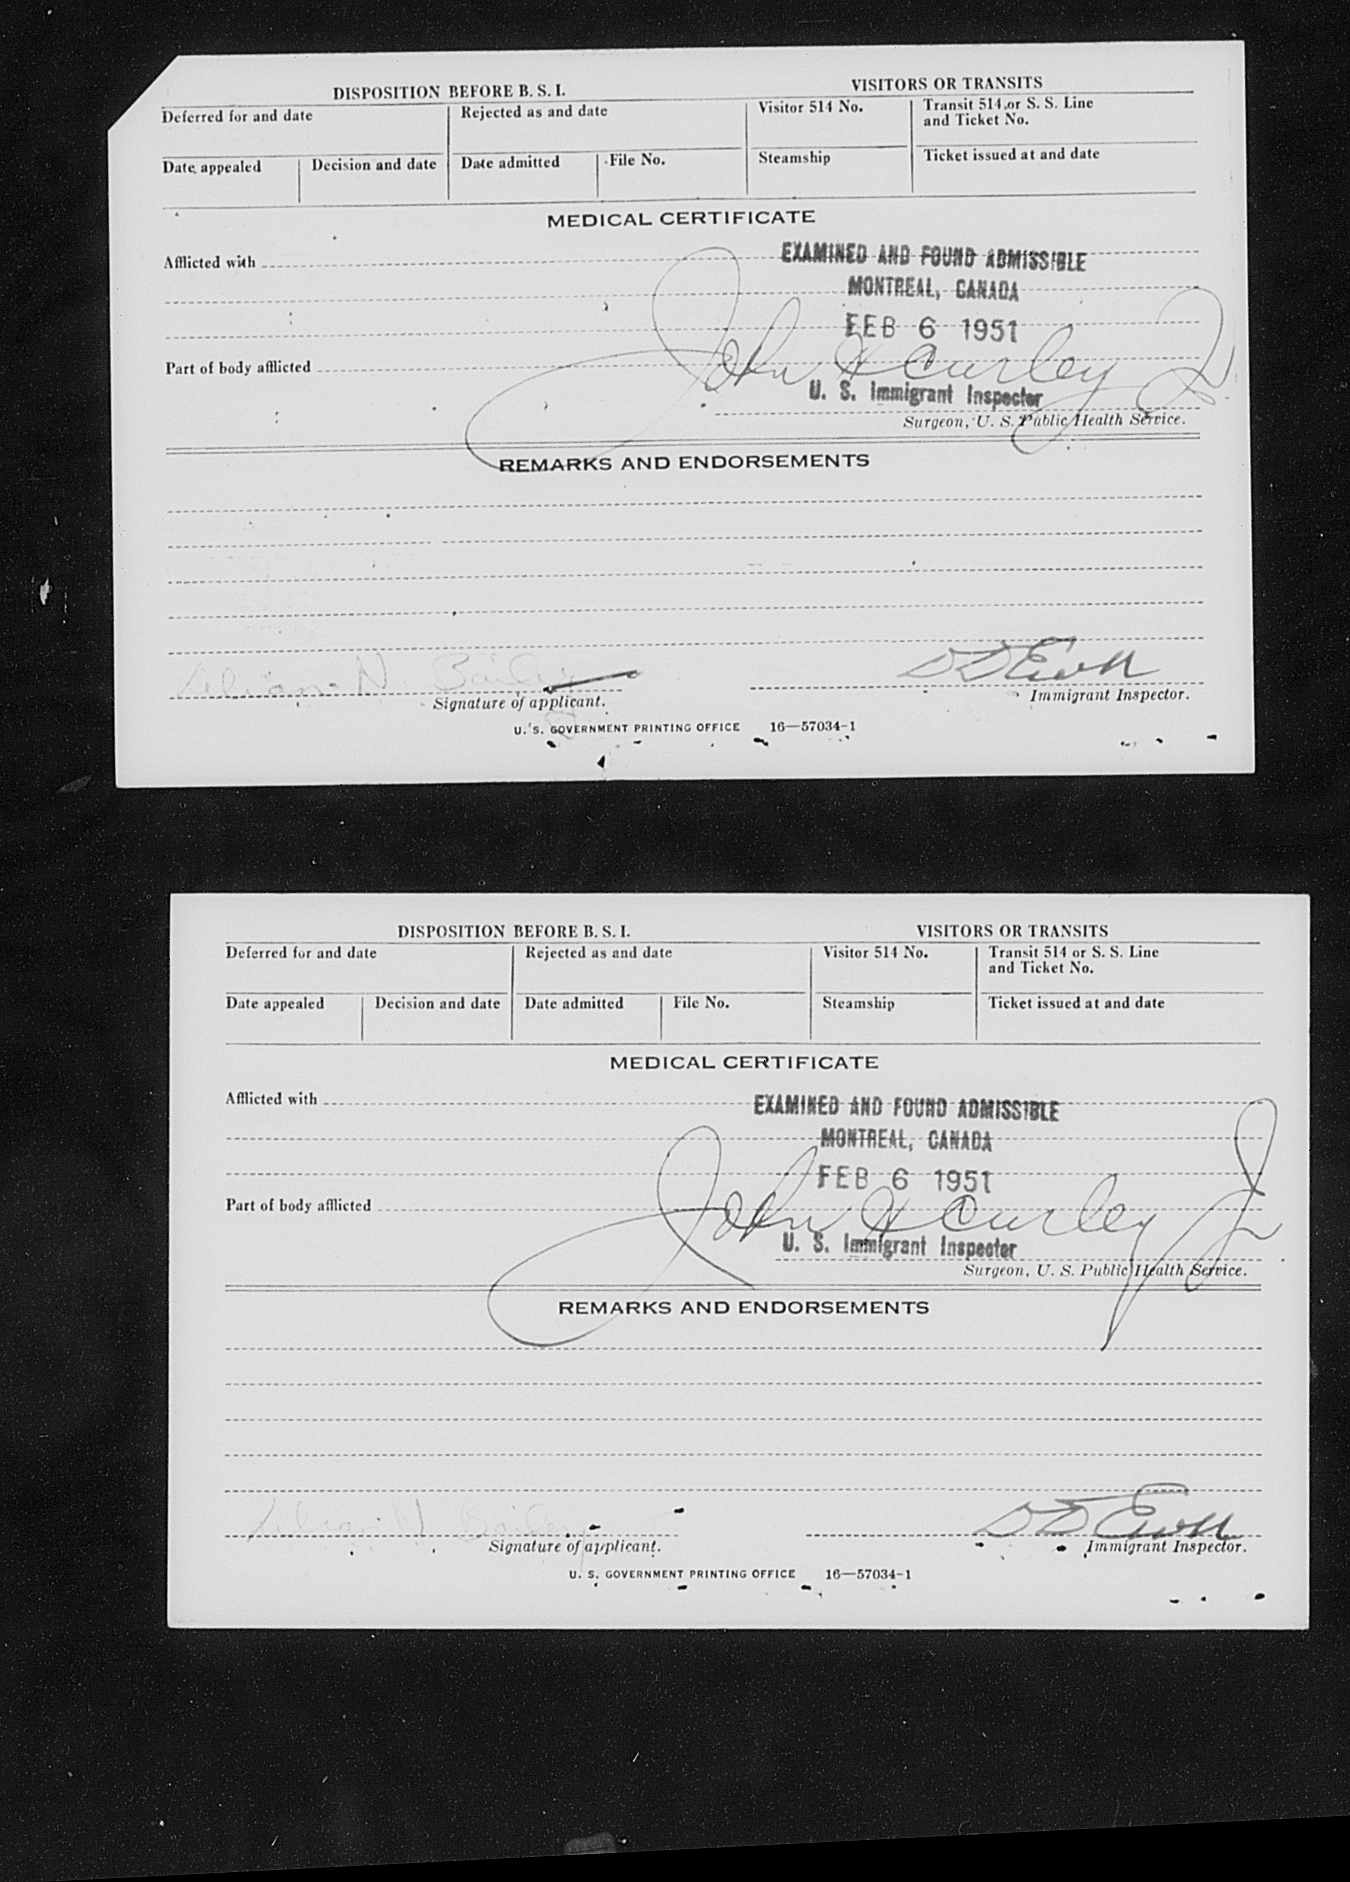 DISPOSITION BEFORE B. S. I. VISITORS OR TRANSITS
Deferred for and date Rejected as and date Visitor 514 No. Transit 514 or S. S. Line
and Ticket No.
Date appealed Decision and date Date admitted File No. Steamship Ticket issued at and date
MEDICAL CERTIFICATE
Afflicted with
EXAMINED AND FOUND ADMISSIBLE
MONTREAL, CANADA
FEB 6 1951
Part of body afflicted
John H Curley Jr
U. S. Immigrant Inspector
Surgeon, U. S. Public Health Service.
REMARKS AND ENDORSEMENTS
Bailey
Signature of applicant. Immigrant Inspector.
U. S. GOVERNMENT PRINTING OFFICE 16—57034-1
DISPOSITION BEFORE B. S. I. VISITORS OR TRANSITS
Deferred for and date Rejected as and date Visitor 514 No. Transit 514 or S. S. Line
and Ticket No.
Date appealed Decision and date Date admitted File No. Steamship Ticket issued at and date
MEDICAL CERTIFICATE
Afflicted with
EXAMINED AND FOUND ADMISSIBLE
MONTREAL, CANADA
FEB 6 1951
Part of body afflicted
John H Curley Jr
U. S. Immigrant Inspector
Surgeon, U. S. Public Health Service.
REMARKS AND ENDORSEMENTS
Bailey
Signature of applicant. Immigrant Inspector.
U. S. GOVERNMENT PRINTING OFFICE 16—57034-1